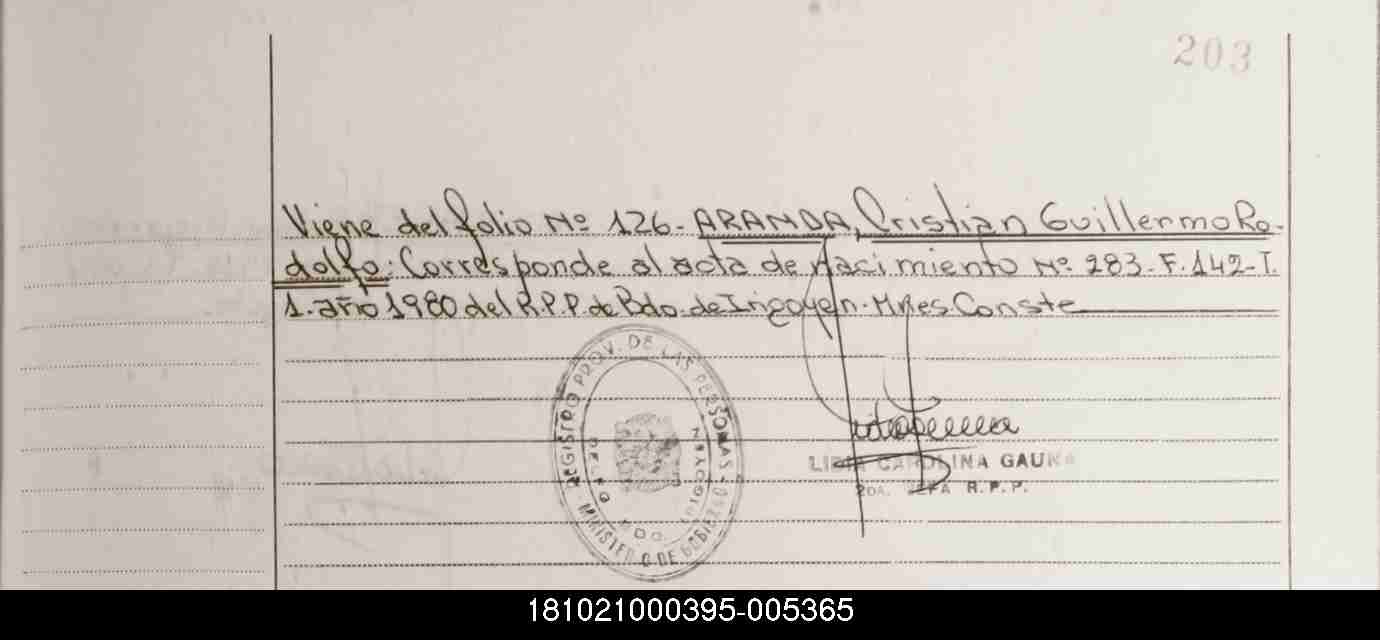 203
Viene del folio Nº 126- ARANDA, Cristian Guillermo Ro-
dolfo: Corresponde al acta de Nacimiento Nº 283-F.142-T.
1. año 1980 del R.P.P. de Bdo. de Irigoyen - Mnes. Conste
REGISTRO PROV. DE LAS PERSONAS
MINISTERIO DE GOBIERNO
BDO IRIGOYEN
CAROLINA GAUNA
2DA. JEFA R.P.P.
181021000395-005365